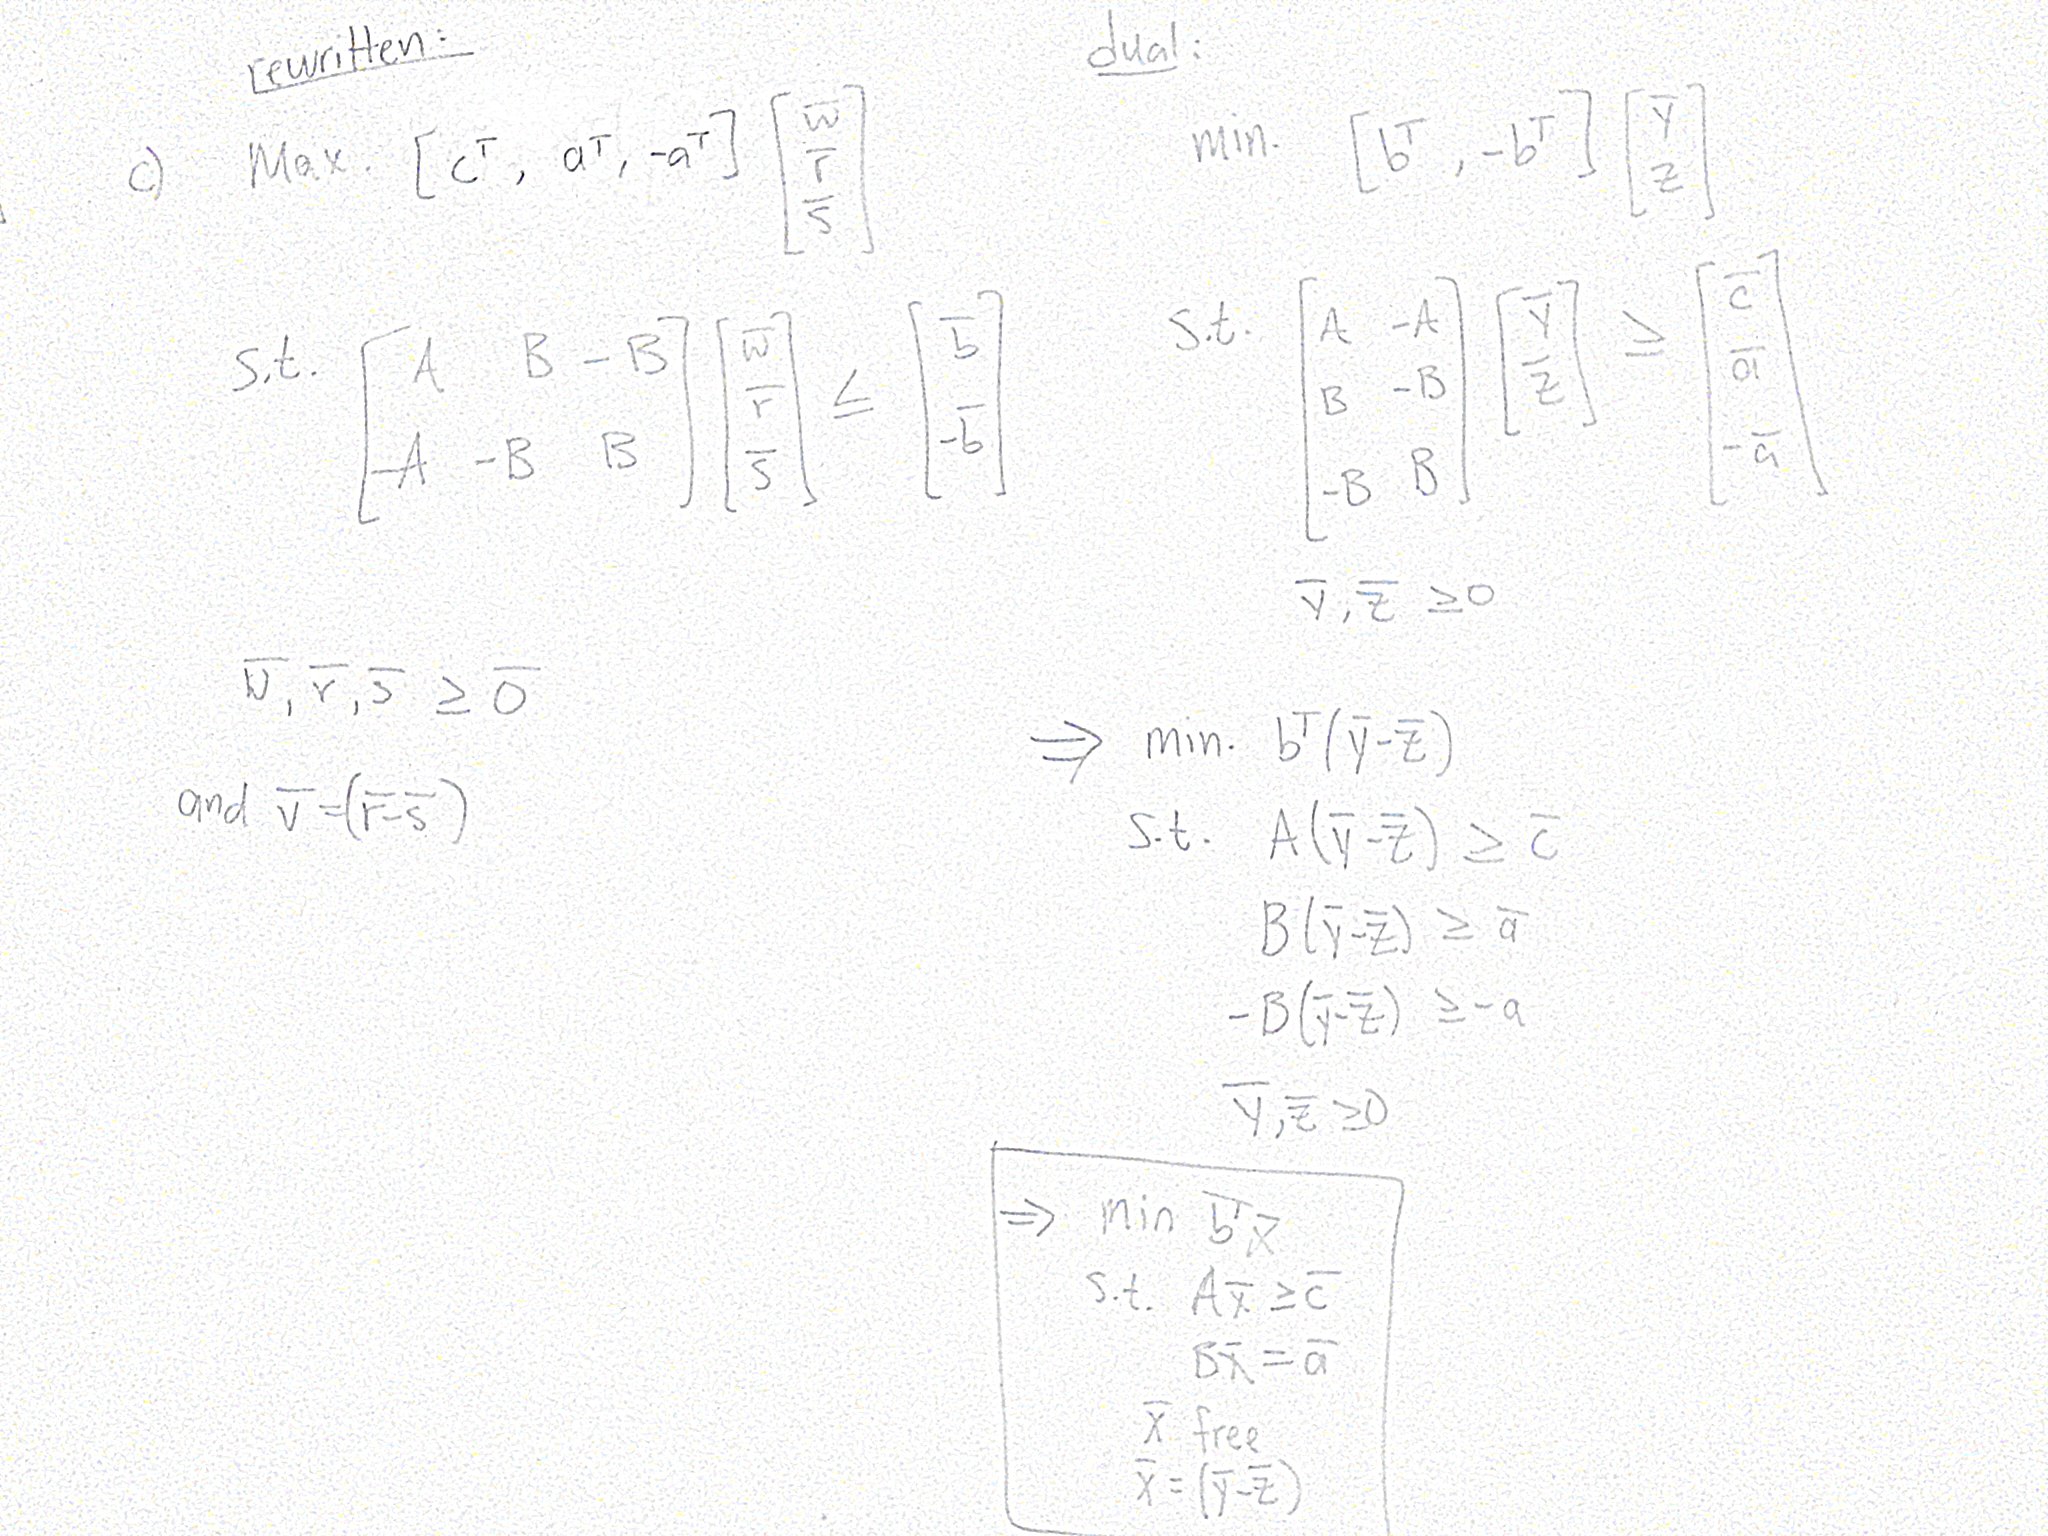 rewritten:
c) Max. [cᵀ, aᵀ, -aᵀ] [w̅ r̅ s̅]
s.t. [A B -B
-A -B B] [w̅ r̅ s̅] ≤ [b̅ -b̅]
w̅, r̅, s̅ ≥ 0̅
and v̅ = (r̅-s̅)
dual:
min. [bᵀ, -bᵀ] [y̅ z]
s.t. [A -A
B -B
-B B] [y̅ z̅] ≥ [c̅ a̅ -a̅]
y̅, z̅ ≥0
⇒ min. bᵀ(y̅-z̅)
s.t. A(y̅-z̅) ≥ c̅
B(y̅-z̅) ≥ a̅
-B(y̅-z̅) ≥ -a
y̅, z̅ ≥0
⇒ min b̅ᵀx̅
s.t. Ax̅ ≥ c̅
Bx̅ = a̅
x̅ free
x̅ = (y̅-z̅)